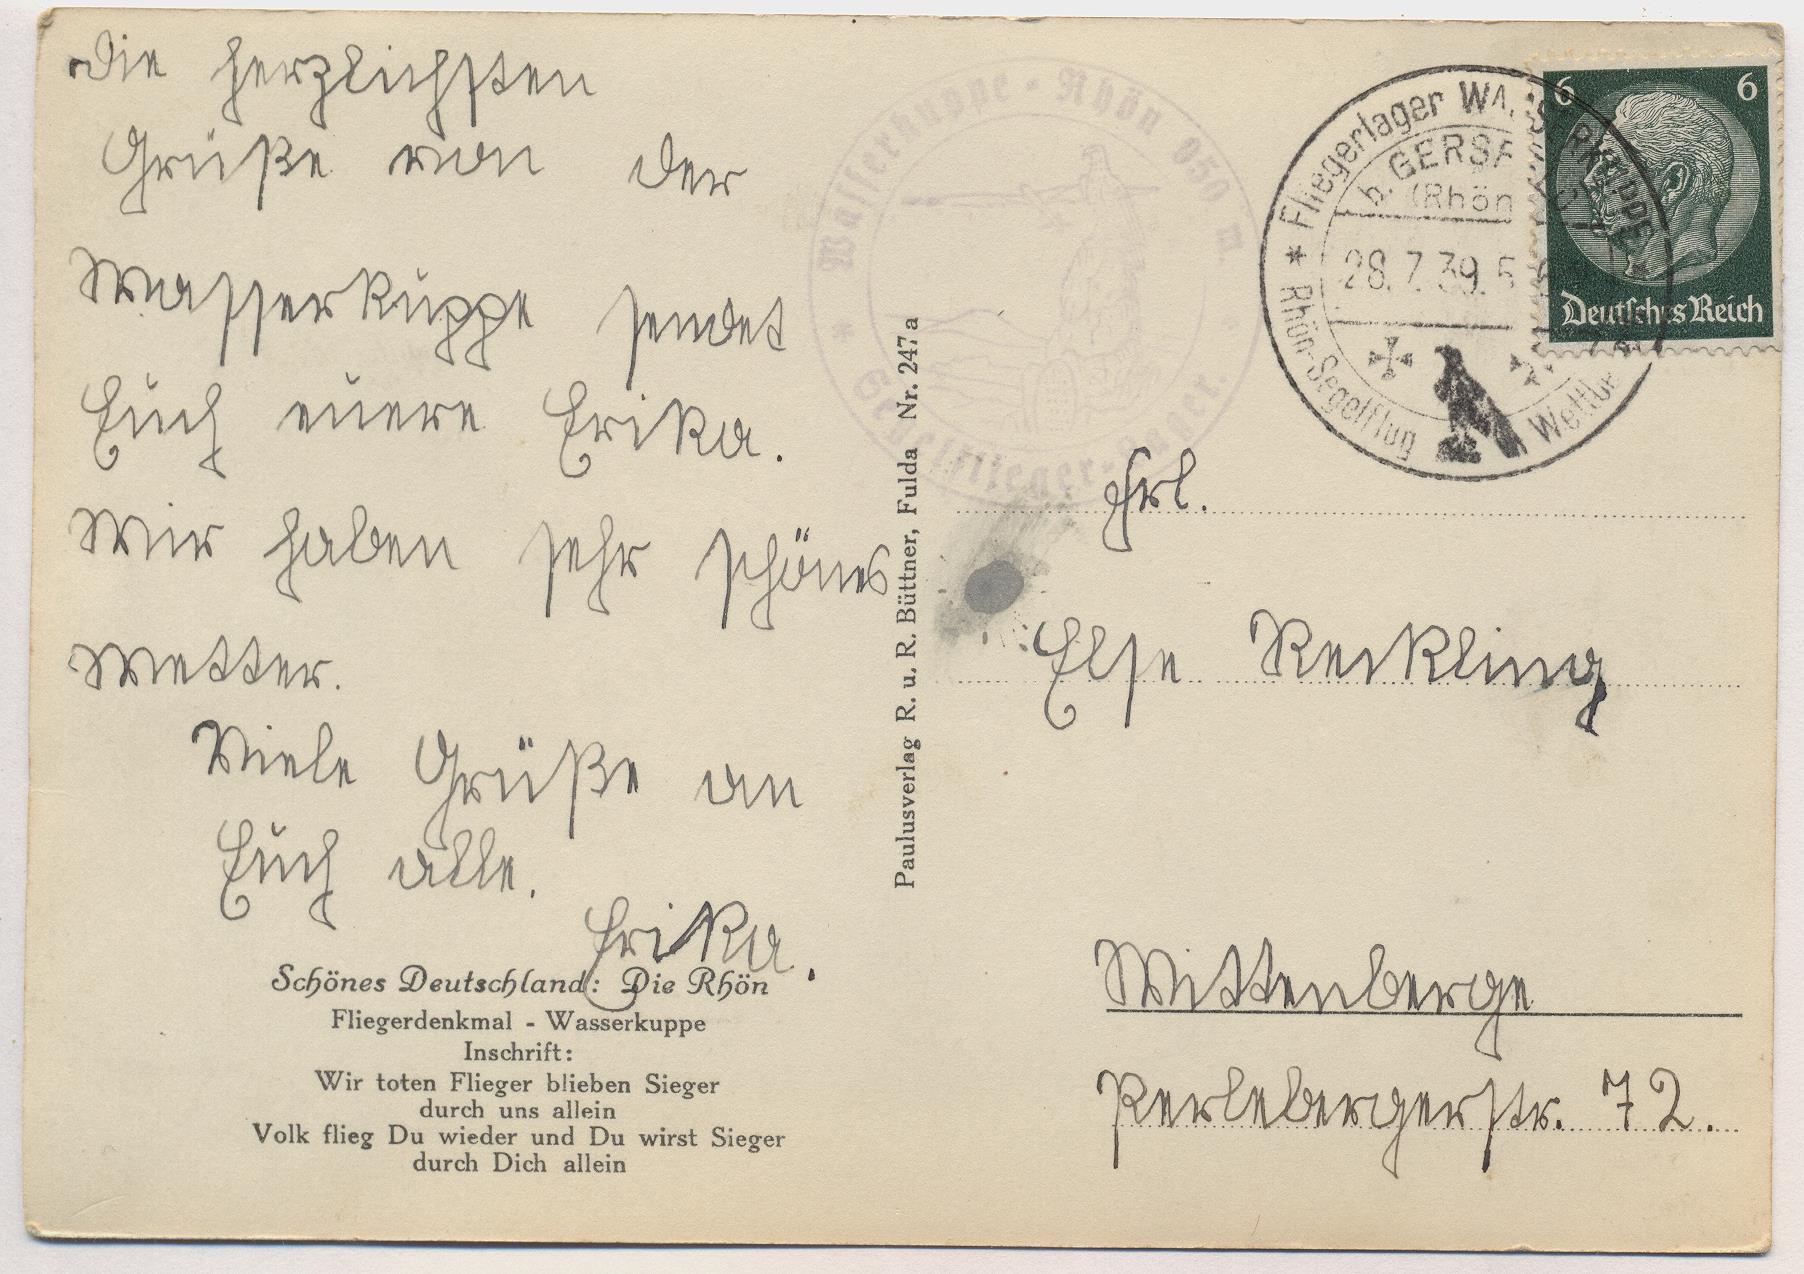 Die herzlichsten
Grüße von der
Wasserkuppe sendet
Euch euere Erika.
Wir haben sehr schönes
Wetter.
Viele Grüße an
Euch alle.
Erika.
Schönes Deutschland: Die Rhön
Fliegerdenkmal - Wasserkuppe
Inschrift:
Wir toten Flieger blieben Sieger
durch uns allein
Volk flieg Du wieder und Du wirst Sieger
durch Dich allein
Paulusverlag R. u. R. Büttner, Fulda Nr. 247a
* Wasserkuppe - Rhön 950 m. *
Segelflieger-Lager.
* Fliegerlager WASSERKUPPE *
b. GERSFELD
(Rhön)
28.7.39.
Rhön-Segelflug Wettbe
6 6
Deutsches Reich
Frl.
Else Reikling
Wittenberge
Perlebergerstr. 72.